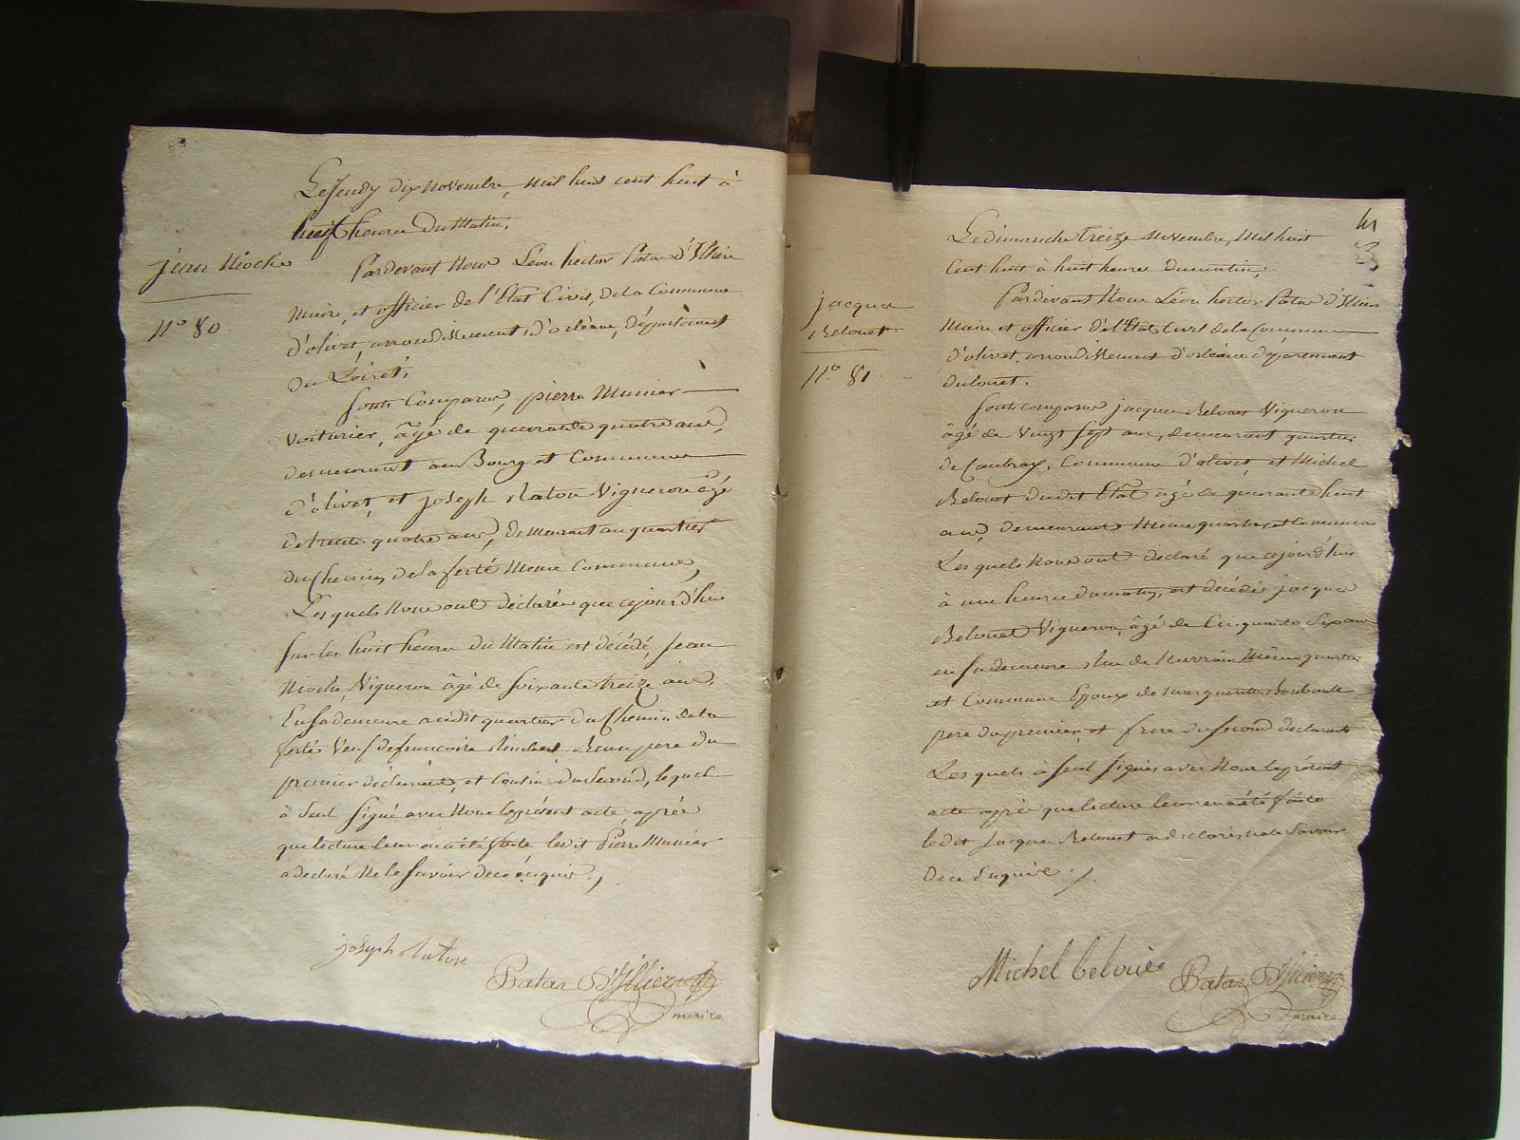 Le Jeudy dix Novembre, mil huit cent huit à
huit heures du Matin.
jean Nioche
N° 80
Pardevant Nous Léon hector Patas d'Illiers
Maire, et officier de l'Etat Civil, de la Commune
d'olivet, arrondissement d'orléans, département
du Loiret,
Sont Comparus, pierre Munier
Voiturier, âgé de quarante quatre ans,
demeurant au Bourg et Commune
d'olivet, et joseph Vigneron âgé
de trente quatre ans, demeurant au quartier
du Chemin de la ferté Meme Commune,
Les quels Nous ont déclaré que cejourd'hui
sur les huit heures du Matin est décédé, Jean
Nioche, Vigneron âgé de soixante treize ans,
En sa demeure audit quartier du Chemin de la
ferté Veuf de francoise Beau pere du
premier déclarant, et Cousin du Second, lequel
à Seul Signé avec Nous le présent acte, après
que lecture leur en a été faite ledit Pierre Munier
a declaré Ne le Savoir de ce enquis.
joseph
Patas D'Illiers
maire
41
Le Dimanche treize Novembre, Mil huit
Cent huit à huit heures du matin,
jacques
Belouet
N° 81
Pardevant Nous Léon hector Patas d'Illiers
Maire et officier de l'Etat Civil de la Commune
d'olivet, arrondissement d'orléans département
du loiret.
Sont comparus jacques Belouet Vigneron
âgé de Vingt Sept ans, demeurant quartier
de Caubray, Commune d'olivet, et Michel
Belouet dudit Etat agé de quarante huit
ans, demeurant Meme quartier et Commune
Les quels Nous ont déclaré que cejourd'hui
à une heure du matin, est décédé jacques
Belouet Vigneron, âgé de Cinquante Six ans
en sa demeure Rue de Même quartier
et Commune Epoux de marguerite
pere du premier, et frere du second declarants
Les quels à Seul Signé avec Nous le présent
acte après que lecture leur en a été faite
ledit Jacques Belouet a declaré Ne le Savoir
de ce Enquis.
Michel belouet
Patas D'Illiers
maire